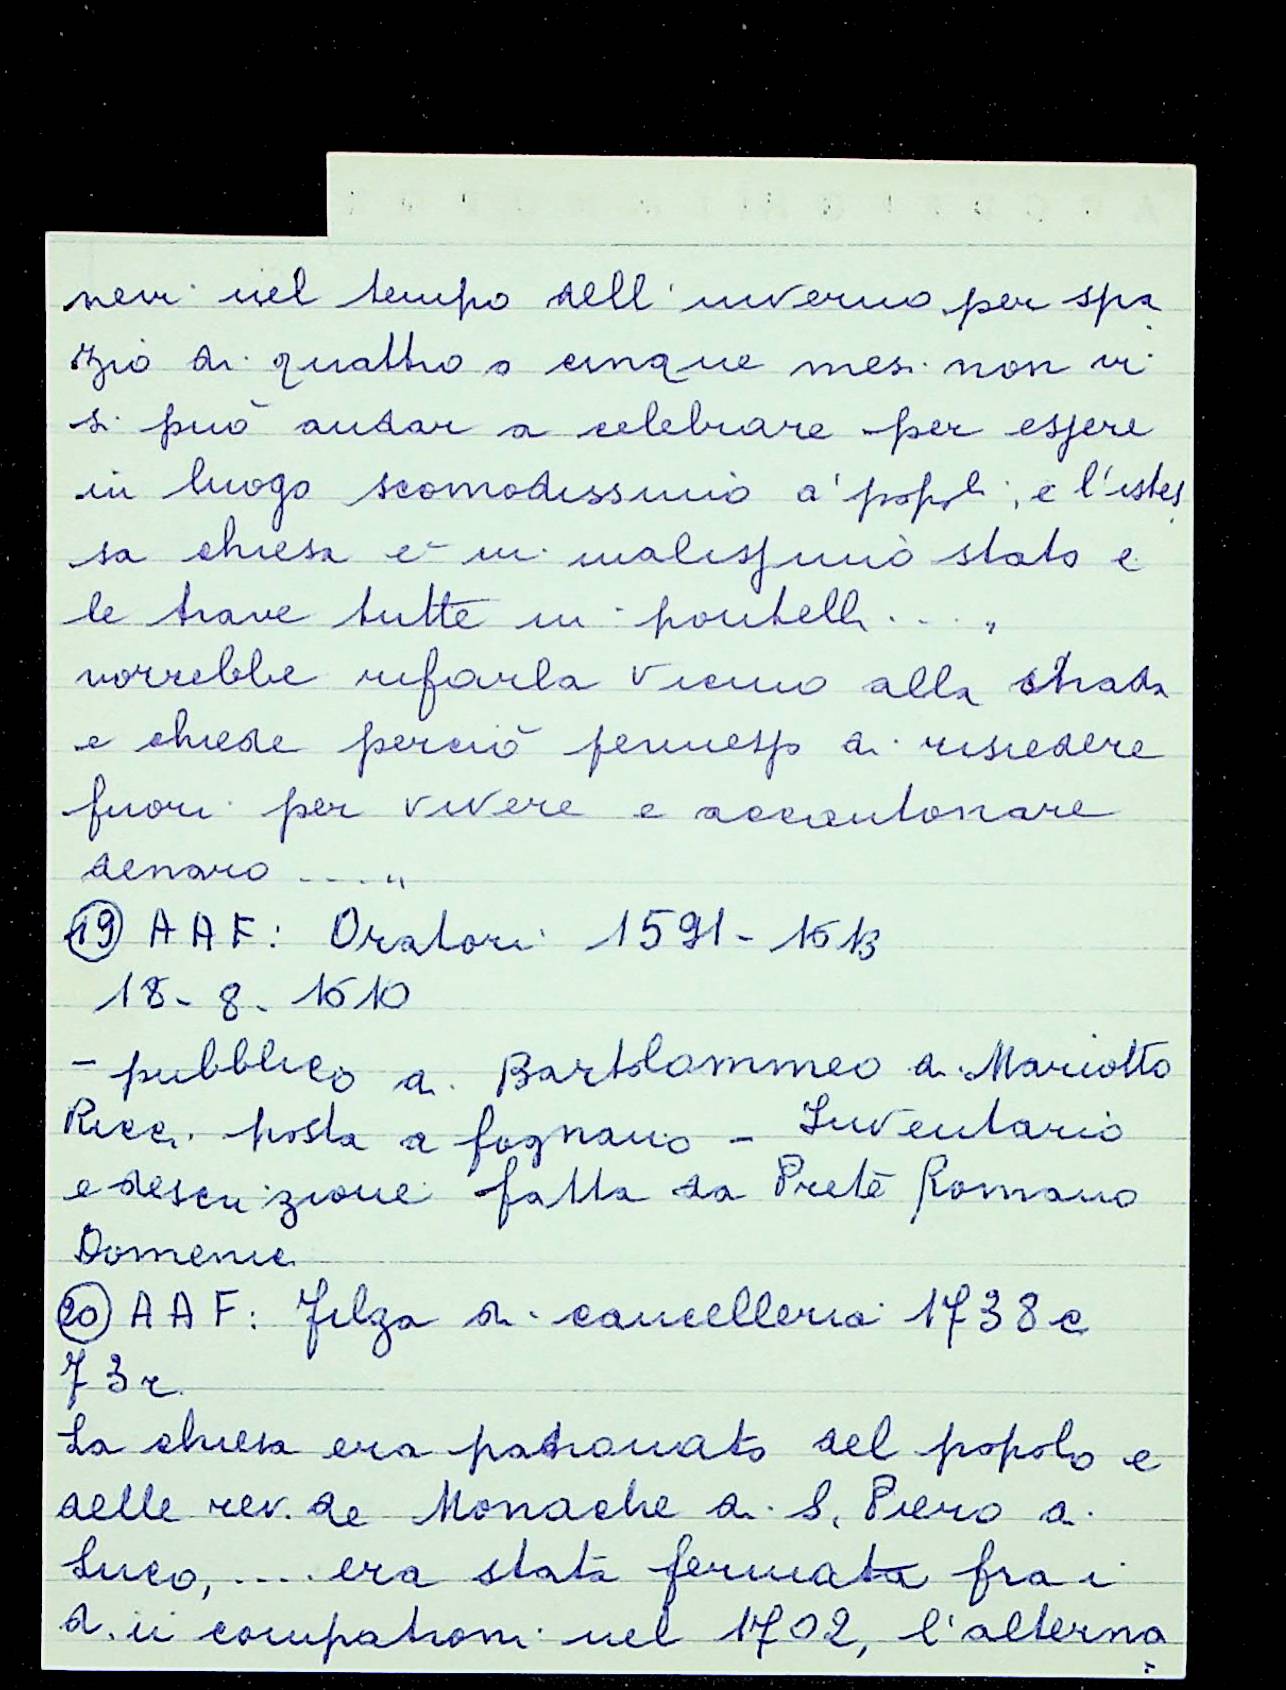 nevi nel tempo dell'inverno per spa
zio di quattro o cinque mesi non vi
si può andar a celebrare per essere
in luogo scomodissimo a' popoli, e l'istes
sa chiesa è in malissimo stato e
le trave tutte in pontelli ... "
vorrebbe rifarla vicino alla strada
e chiede perciò permesso di risiedere
fuori per vivere e accantonare
denaro .... "
(19) AAF: Oratori 1591-1613
18-8-1610
- pubblico di Bartolommeo di Mariotto
Ricci posta a fognano - Inventario
e descrizione fatta da Prete Romano
Domenici
(20) AAF: Filza di cancelleria 1738 c
73r.
La chiesa era patronato del popolo e
delle rev.de Monache di S. Piero a
Luco, .... era stata fermata fra i
d.ii compatroni nel 1702, l'alterna